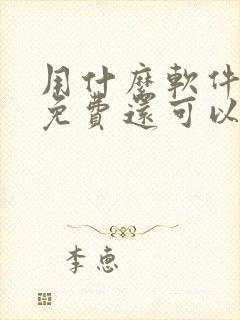 用什麼軟件
免費還可以
李惠